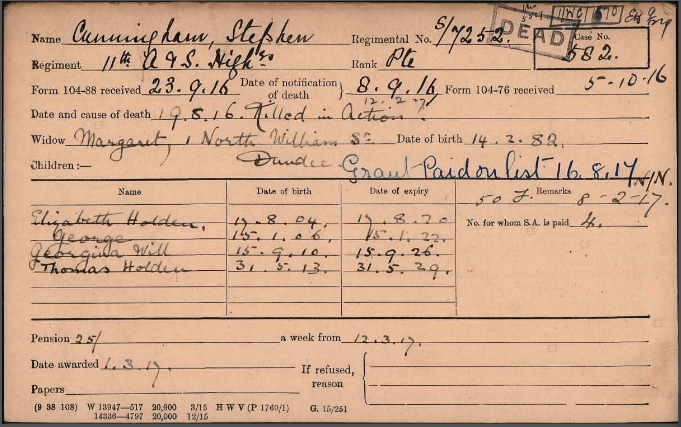 Name Cunningham, Stephen Regimental No. S/7252. DEAD Case No. 582.
Regiment 11th A & S. Highrs Rank Pte
Form 104-88 received 23.9.16 Date of notification of death } 8.9.16 Form 104-76 received 5-10-16
12.2.17
Date and cause of death 19.8.16. Killed in Action.
Widow Margaret, 1 North William St. Date of birth 14.2.82.
Dundee
Children:— Grant Paid on list 16.8.17
Name Date of birth Date of expiry 50 F. Remarks 8-2-17.
Elizabeth Holden. 17.8.04. 17.8.20 No. for whom S.A. is paid 4.
George 15.1.06. 15.1.22.
Georgina Will 15.9.10. 15.9.26.
Thomas Holden 31.5.13. 31.5.29.
Pension 25/ a week from 12.3.17.
Date awarded 1.3.17. If refused, reason {
Papers
(9 38 108) W 13947—517 20,000 3/15 H W V (P 1760/1) G. 15/251
14336—4797 20,000 12/15